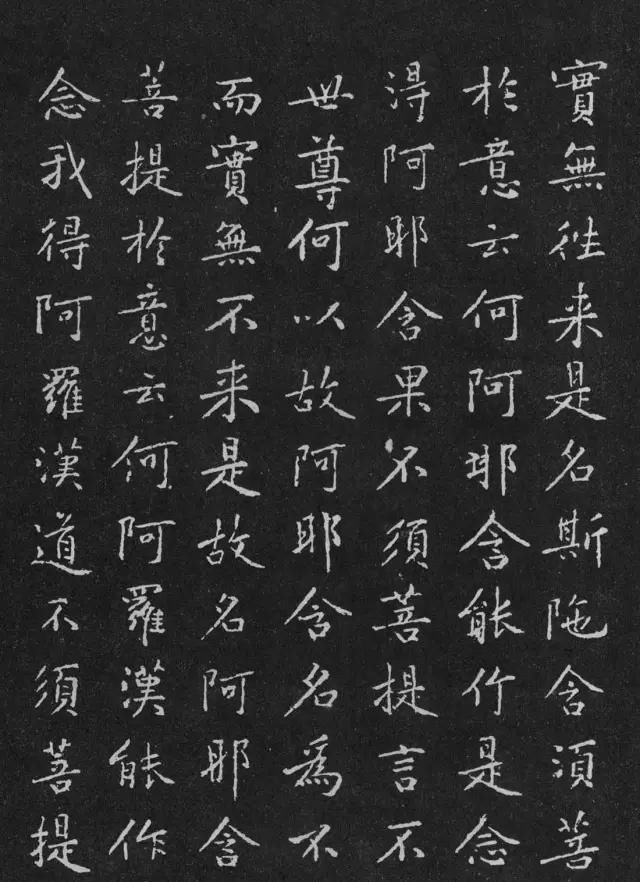 實無往来是名斯陁含須菩
於意云何阿耶含能作是念
淂阿耶含果不須菩提言不
世尊何以故阿耶含名為不
而實無不来是故名阿耶含
菩提於意云何阿羅漢能作
念我得阿羅漢道不須菩提